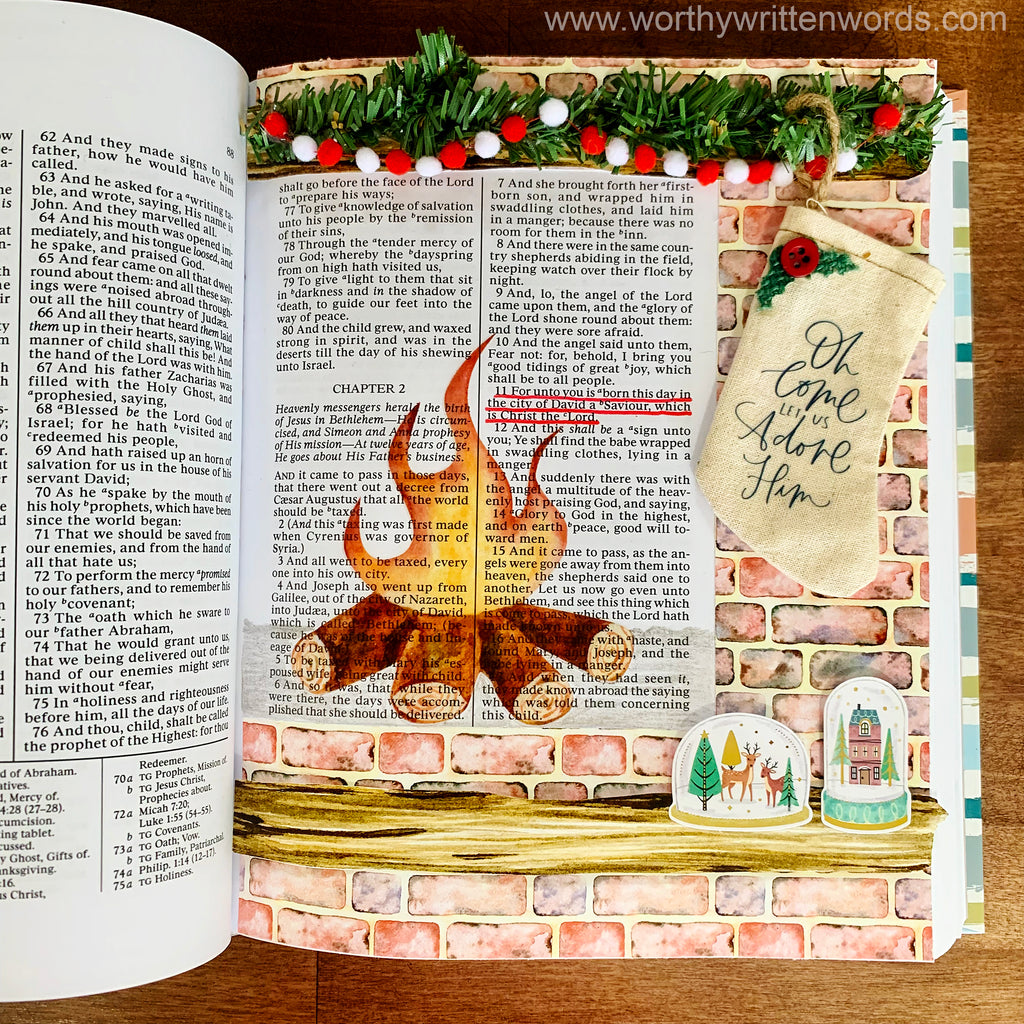 www.worthywrittenwords.com
88
62 And they made signs to his
father, how he would have him
called.
63 And he asked for a ᵃwriting ta-
ble, and wrote, saying, His name is
John. And they marvelled all.
64 And his mouth was opened im-
mediately, and his tongue loosed, and
he spake, and praised God.
65 And fear came on all that dwelt
round about them: and all these say-
ings were ᵃnoised abroad through-
out all the hill country of Judæa.
66 And all they that heard them laid
them up in their hearts, saying, What
manner of child shall this be! And
the hand of the Lord was with him.
67 And his father Zacharias was
filled with the Holy Ghost, and
ᵃprophesied, saying,
68 ᵃBlessed be the Lord God of
Israel; for he hath ᵇvisited and
ᶜredeemed his people,
69 And hath raised up an horn of
salvation for us in the house of his
servant David;
70 As he ᵃspake by the mouth of
his holy ᵇprophets, which have been
since the world began:
71 That we should be saved from
our enemies, and from the hand of
all that hate us;
72 To perform the mercy ᵃpromised
to our fathers, and to remember his
holy ᵇcovenant;
73 The ᵃoath which he sware to
our ᵇfather Abraham,
74 That he would grant unto us,
that we being delivered out of the
hand of our enemies might serve
him without ᵃfear,
75 In ᵃholiness and righteousness
before him, all the days of our life.
76 And thou, child, shalt be called
the prophet of the Highest: for thou
d of Abraham.
atives.
, Mercy of.
4:28 (27–28).
cumcision.
ing tablet.
cussed.
y Ghost, Gifts of.
nksgiving.
:16.
s Christ,
Redeemer.
70a TG Prophets, Mission of.
b TG Jesus Christ,
Prophecies about.
72a Micah 7:20;
Luke 1:55 (54–55).
b TG Covenants.
73a TG Oath; Vow.
b TG Family, Patriarchal.
74a Philip. 1:14 (12–17).
75a TG Holiness.
shalt go before the face of the Lord
to ᵃprepare his ways;
77 To give ᵃknowledge of salvation
unto his people by the ᵇremission
of their sins,
78 Through the ᵃtender mercy of
our God; whereby the ᵇdayspring
from on high hath visited us,
79 To give ᵃlight to them that sit
in ᵇdarkness and in the shadow of
ᶜdeath, to guide our feet into the
way of peace.
80 And the child grew, and waxed
strong in spirit, and was in the
deserts till the day of his shewing
unto Israel.
CHAPTER 2
Heavenly messengers herald the birth
of Jesus in Bethlehem—He is circum-
cised, and Simeon and Anna prophesy
of His mission—At twelve years of age,
He goes about His Father's business.
AND it came to pass in those days,
that there went out a decree from
Cæsar Augustus, that all the world
should be ᵃtaxed.
2 (And this ᵃtaxing was first made
when Cyrenius was governor of
Syria.)
3 And all went to be taxed, every
one into his own city.
4 And Joseph also went up from
Galilee, out of the city of Nazareth,
into Judæa, unto the city of David,
which is called Bethlehem; (be-
cause he was of the house and lin-
eage of David:)
5 To be taxed with Mary his ᵃes-
poused wife, being great with child.
6 And so it was, that, while they
were there, the days were accom-
plished that she should be delivered.
7 And she brought forth her ᵃfirst-
born son, and wrapped him in
swaddling clothes, and laid him
in a manger; because there was no
room for them in the ᵇinn.
8 And there were in the same coun-
try shepherds abiding in the field,
keeping watch over their flock by
night.
9 And, lo, the angel of the Lord
came upon them, and the ᵃglory of
the Lord shone round about them:
and they were sore afraid.
10 And the angel said unto them,
Fear not: for, behold, I bring you
ᵃgood tidings of great ᵇjoy, which
shall be to all people.
11 For unto you is ᵃborn this day in
the city of David a ᵇSaviour, which
is Christ the ᶜLord.
12 And this shall be a ᵃsign unto
you; Ye shall find the babe wrapped
in swaddling clothes, lying in a
manger.
13 suddenly there was with
the angel a multitude of the heav-
enly host praising God, and saying,
14 ᵃGlory to God in the highest,
and on earth ᵇpeace, good will to-
ward men.
15 And it came to pass, as the an-
gels were gone away from them into
heaven, the shepherds said one to
another, Let us now go even unto
Bethlehem, and see this thing which
is come to pass, which the Lord hath
made known unto us.
16 And they came with ᵃhaste, and
found Mary, and Joseph, and the
babe lying in a manger.
17 And when they had seen it,
they made known abroad the saying
which was told them concerning
this child.
Oh
Come
LET US
Adore
Him